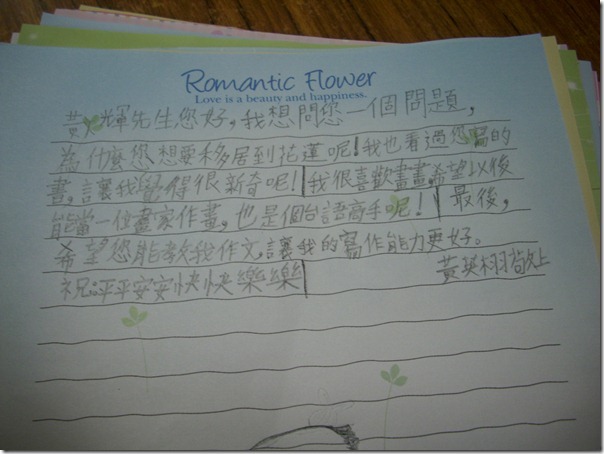 Romantic Flower
Love is a beauty and happiness.
黃 輝先生您好,我想問您一個問題,
為什麼您想要移居到花蓮呢!我也看過您寫的
書,讓我覺得很新奇呢!我很喜歡畫畫,希望以後
能當一位畫家作畫,也是個台語高手呢!最後,
希望您能教我作文,讓我的寫作能力更好。
祝:平平安安快快樂樂
黃英栩敬上